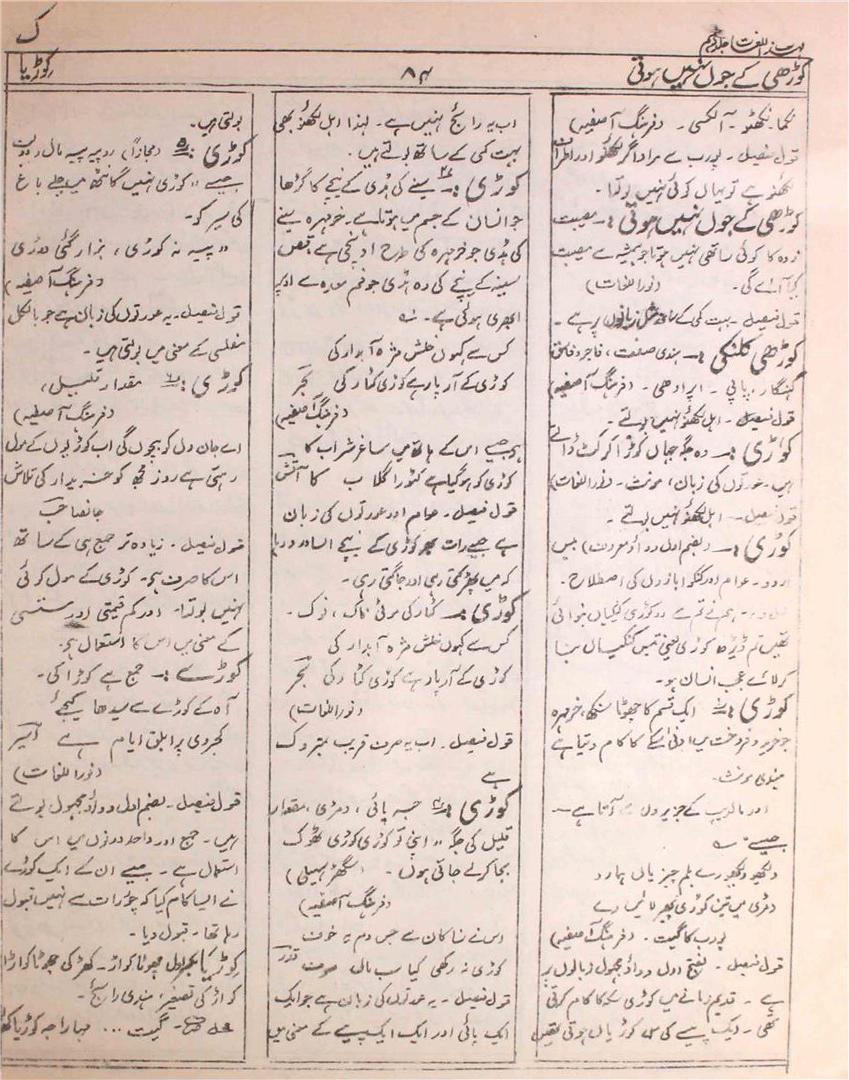 ک
کوڑھی کے جوں نہیں ہوتی
۸۴
کوڑیا
نکما۔ نکھٹو۔ آلکسی۔ (فرہنگ آصفیہ)
قول فیصل۔ پورب سے مراد اگر لکھنؤ اور اطراف
لکھنؤ ہے تو یہاں کوئی نہیں بولتا۔
کوڑھی کے جوں نہیں ہوتی :۔ مصیبت
زدہ کا کوئی ساتھی نہیں ہوتا جو ہمیشہ سے مصیبت
(نوراللغات)
قول فیصل۔ بہت کمی کے ساتھ مثل زبانوں پر ہے۔
کوڑھی کلنکی :۔ ہندی صفت، فاجر و فاسق
گنہگار، پاپی۔ اپرادھی۔ (فرہنگ آصفیہ)
قول فیصل۔ اہل لکھنؤ نہیں بولتے۔
کوڑی :۔ وہ جگہ جہاں کوڑا کرکٹ ڈالتے
ہیں۔ عورتوں کی زبان، مونث۔ (نوراللغات)
قول فیصل۔ اہل لکھنؤ نہیں بولتے۔
کوڑی :۔ (بضم اول و واؤ معروف) بیس
اردو۔ عوام اور کنکوا بازوں کی اصطلاح۔
ہم نے تم سے دو کوڑی کنکیاں بنوائی
تھیں تم ڈیڑھ کوڑی یعنی تیس کنکیاں بنا
کر لائے عجب انسان ہو۔
کوڑی :۔ ایک قسم کا چھوٹا سنکھ، خرمہرہ
جو خرید و فروخت میں ادنی سکے کا کام دیتا ہے
ہندی مونث۔
اور مالدیپ کے جزیروں میں آتا ہے۔
جیسے۔
دیکھو دیکھو رے بلم چیز یاں ہارو
دمڑی میں تین کوڑی پھیر لائیں رے
پورب کا گیت۔ (فرہنگ آصفیہ)
قول فیصل۔ بفتح اول و واؤ مجہول زبانوں پر
ہے۔ قدیم زمانے میں کوڑی سکہ کا کام کرتی
تھی۔ ایک پیسے کی کوڑیاں ہوتی تھیں
اب یہ رائج نہیں ہے۔ لہذا اہل لکھنؤ بھی
بہت کمی کے ساتھ بولتے ہیں۔
کوڑی :۔ سینے کی ہڈی کے نیچے کا گڑھا
جو انسان کے جسم میں ہوتا ہے۔ خرمہرہ سینے
کی ہڈی جو خرمہرہ کی طرح اونچی ہے، قص
سینہ کے نیچے کی وہ ہڈی جو فم معدہ سے اوپر
ابھری ہوئی ہے۔
کس سے کہوں خلش مژہ آبدار کی
کوڑی کے آر پار ہے کوڑی کٹار کی بحر
(فرہنگ آصفیہ)
ہے جیسے اس کے ہاتھ میں ساغر شراب کا
کوڑی کو ہوگیا ہے کٹورا گلاب کا آتش
قول فیصل۔ عوام اور عورتوں کی زبان
ہے جیسے رات بھر کوڑی کے نیچے ایسا درد رہا
کہ میں پھڑکتی رہی اور جاگتی رہی۔
کوڑی :۔ کٹار کی موٹی ناک، نوک۔
کس سے کہوں خلش مژہ آبدار کی
کوڑی کے آر پار ہے کوڑی کٹار کی بحر
(نوراللغات)
قول فیصل۔ اب یہ صرف قریب بمتروک
ہے
کوڑی :۔ حبہ پائی، دمڑی، مقدار
قلیل کی جگہ "اپنی تو کوڑی کوڑی ٹھوک
بجا کر لے جاتی ہوں۔ (سگھڑ سہیلی)
(فرہنگ آصفیہ)
اس نے نہ کان سے جس دم یہ خوف
کوڑی نہ رکھی کیا سب مال صرف قدر
قول فیصل۔ یہ عورتوں کی زبان ہے جو ایک
ایک پائی اور ایک ایک پیسے کے معنی میں
بولتی ہیں۔
کوڑی :۔ (مجازاً) روپیہ پیسہ مال دولت
جیسے "کوڑی نہیں گانٹھ میں چلے باغ
کی سیر کو۔
"پیسہ نہ کوڑی، بزار گئی دوڑی
(فرہنگ آصفیہ)
قول فیصل۔ یہ عورتوں کی زبان ہے جو بالکل
مفلسی کے معنی میں بولتی ہیں۔
کوڑی :۔ مقدار قلیل،
(فرہنگ آصفیہ)
اے جان دل کو بیچوں گی اب کوڑیوں کے مول
رہتی ہے روز مجھ کو خریدار کی تلاش
جانصاحب
قول فیصل۔ زیادہ تر جمع ہی کے ساتھ
اس کا صرف ہے۔ کوڑی کے مول کوئی
نہیں بولتا۔ اور کم قیمتی اور سستی
کے معنی میں اس کا استعمال ہے۔
کوڑے :۔ جمع ہے کوڑا کی۔
آہ کے کوڑے سے سیدھا کیجئے
کجروی پر ابلق ایام ہے اسیر
(نوراللغات)
قول فیصل۔ بضم اول و واؤ مجہول بولتے
ہیں۔ جمع اور واحد دونوں میں اس کا
استعمال ہے۔ جیسے ان کے ایک کوڑے
نے ایسا کام کیا کہ چور رات سے نہیں قبول
رہا تھا۔ قبول دیا۔
کوڑیا بکسر اول چھوٹا کواڑ۔ کھڑکی چھوٹا کواڑا
کواڑ کی تصغیر، ہندی رائج۔
گیت...